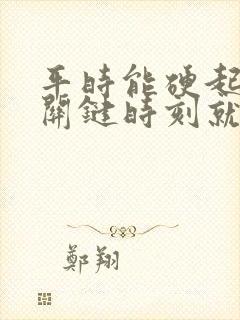 平時能硬起
關鍵時刻就
鄭翔